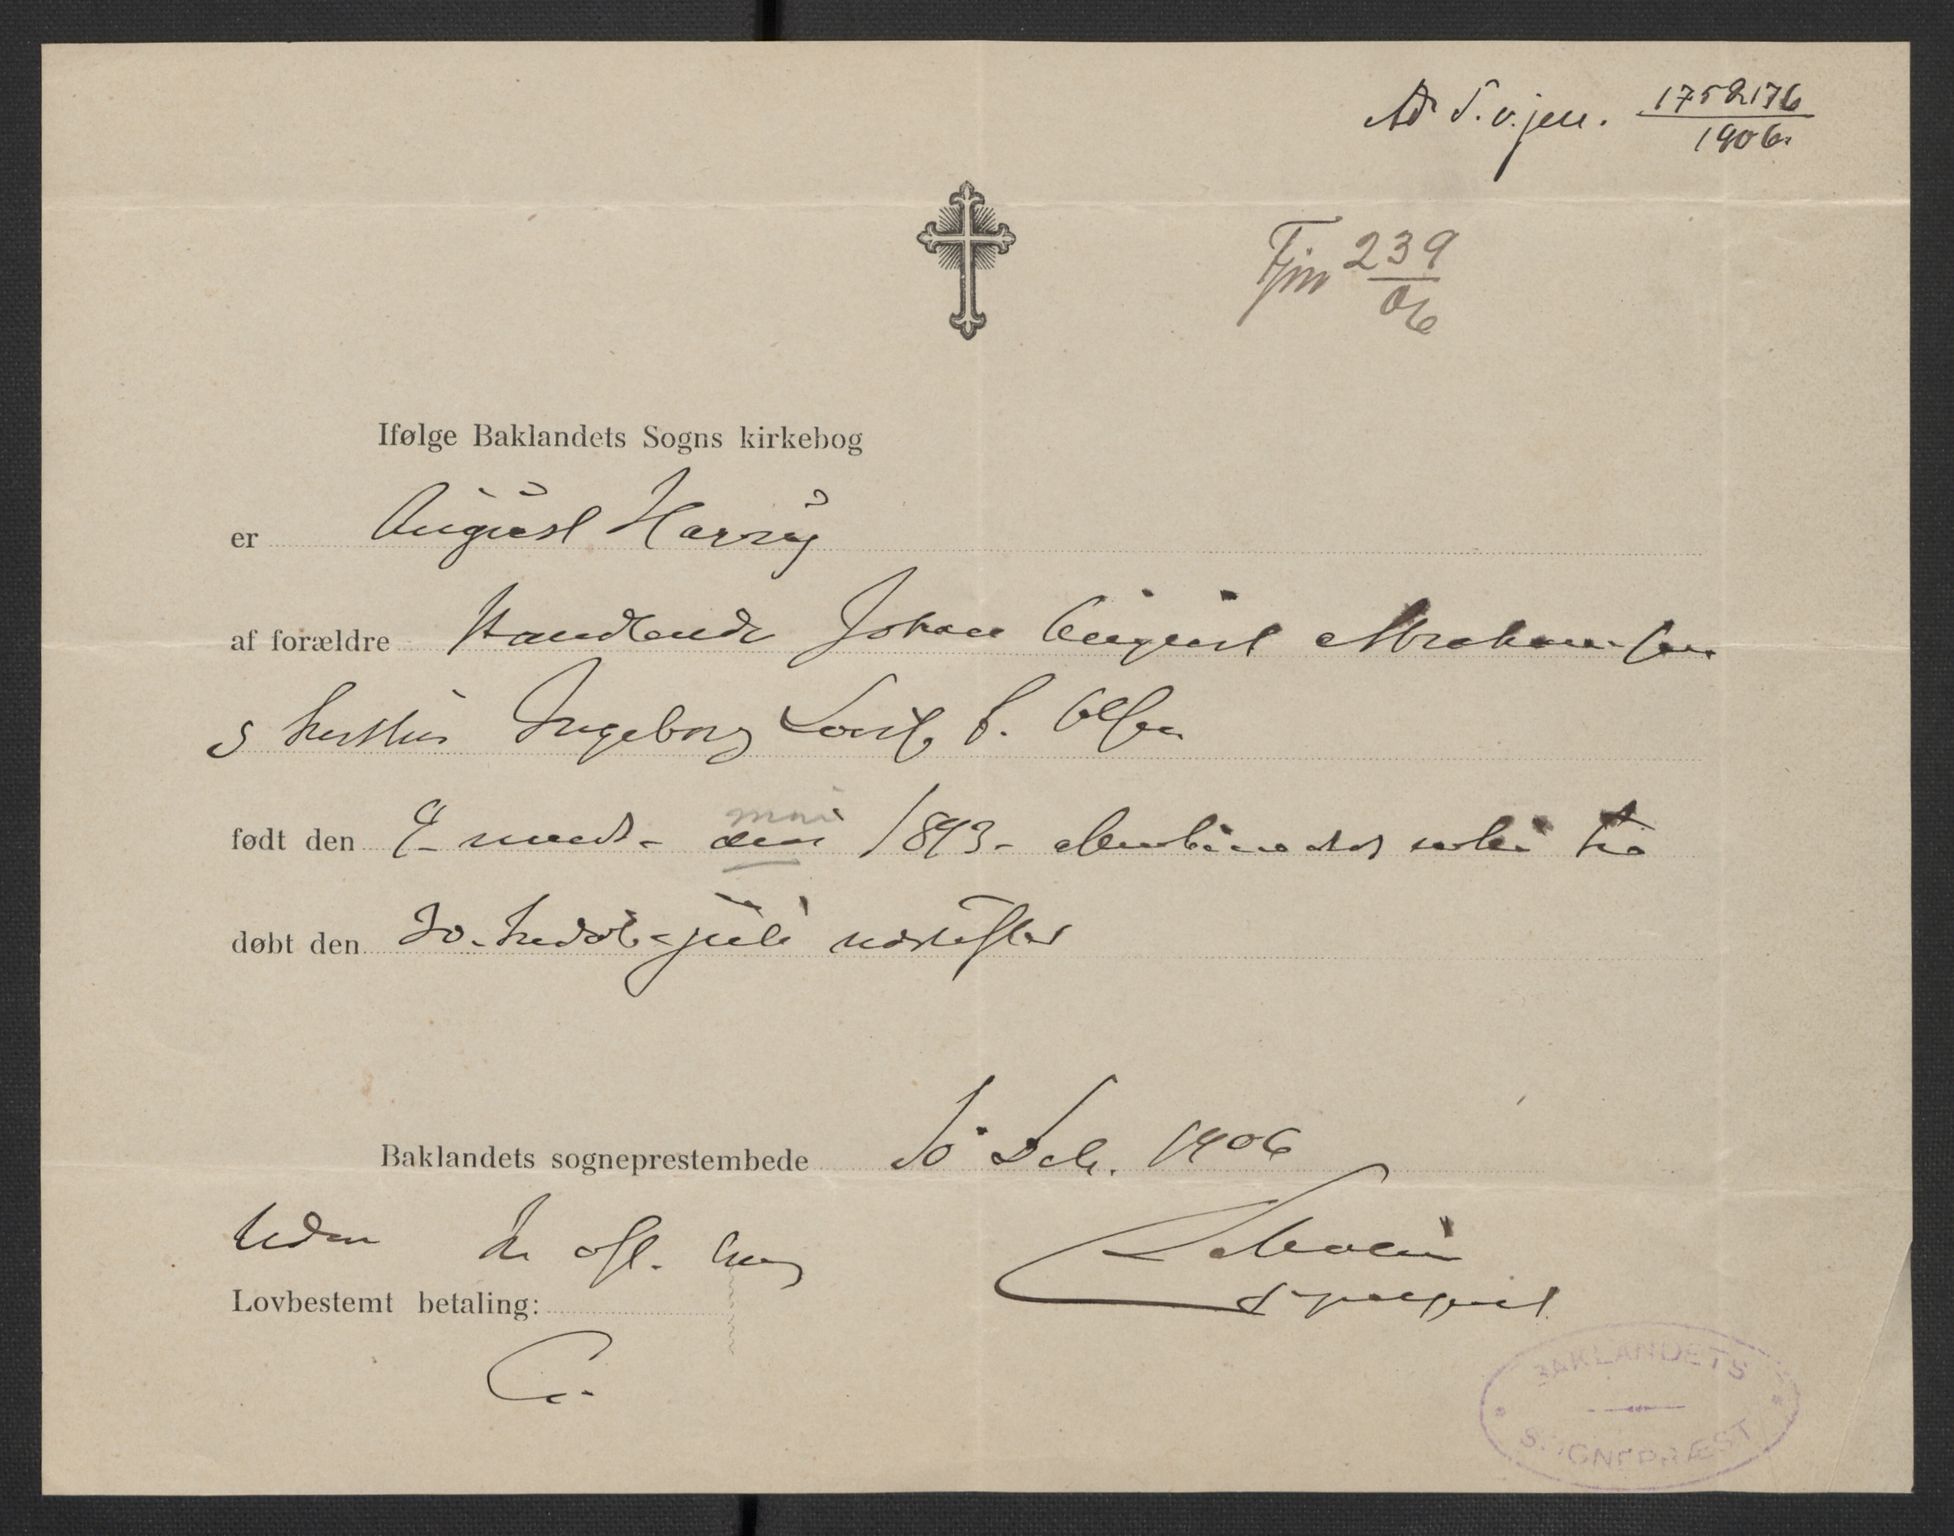 Ad S. v. jen. 1752176
1906.
Fjm 239
06
Ifølge Baklandets Sogns kirkebog
er August Harry
af forældre Handlende Johan August Abrahamsen
s hustru Ingeborg Lovise f. Olsen
født den 9- niende - mai 1893-
døbt den 30. tredivte juli næstefter
Baklandets sogneprestembede 10 Feb. 1906
uden til ofl. brug
Lovbestemt betaling:
sogneprest
BAKLANDETS
SOGNEPRÆST